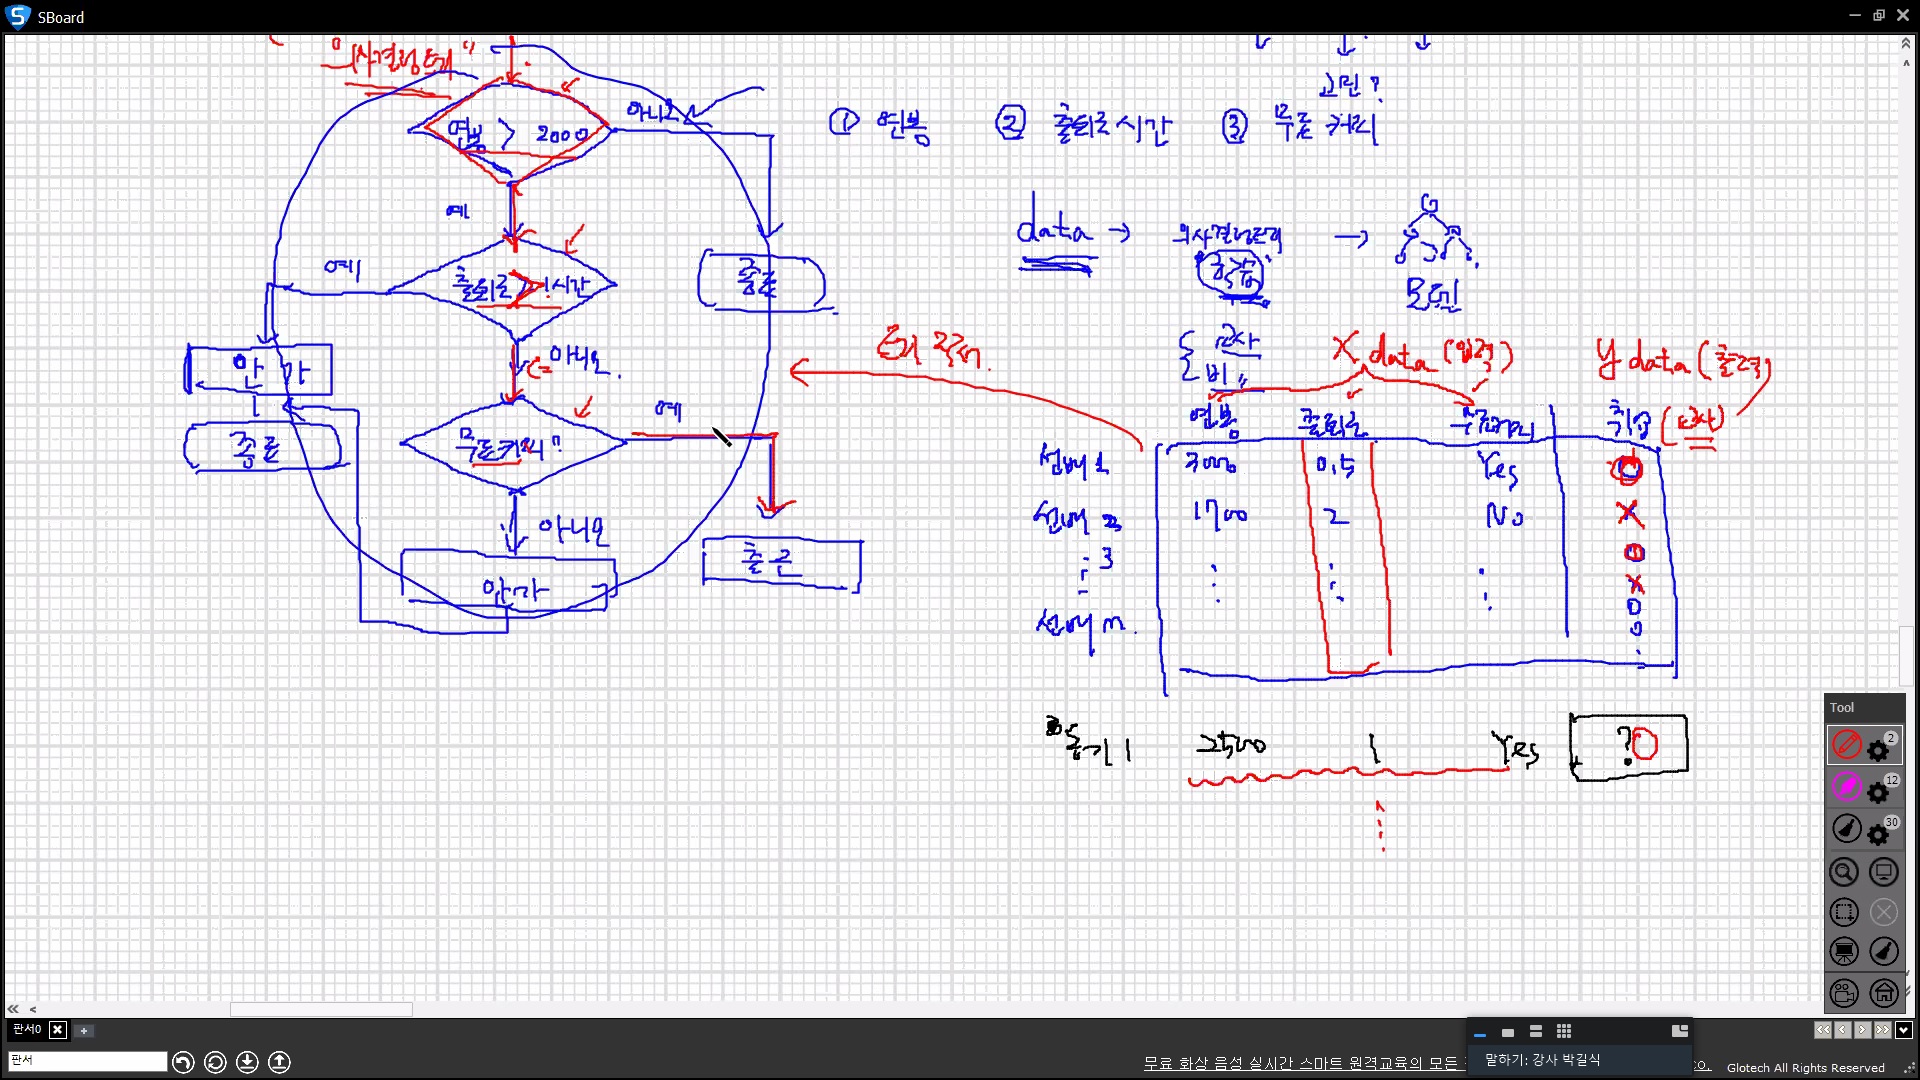 SBoard
"의사결정트리"
연봉 > 2000
아니오
예
예
출퇴근 > 1시간
종료
안 가
아니오
종료
무료커피?
예
아니오
안가
출근
고민?
① 연봉 ② 출퇴근시간 ③ 무료 커피
data → 의사결정트리 →
"학습"
모델
트리 구조
교사
비〃
X data (입력)
Y data (출력)
연봉 출퇴근 무료커피 취업 (교사)
선배 1 3000 0.5 Yes O
선배 2 1700 2 No X
3 O
X
O
O
선배 n
동기 1 2500 1 Yes ? O
Tool
2
12
30
판서0
판서
무료 화상 음성 실시간 스마트 원격교육의 모든
말하기: 강사 박길식
co.
Glotech All Rights Reserved